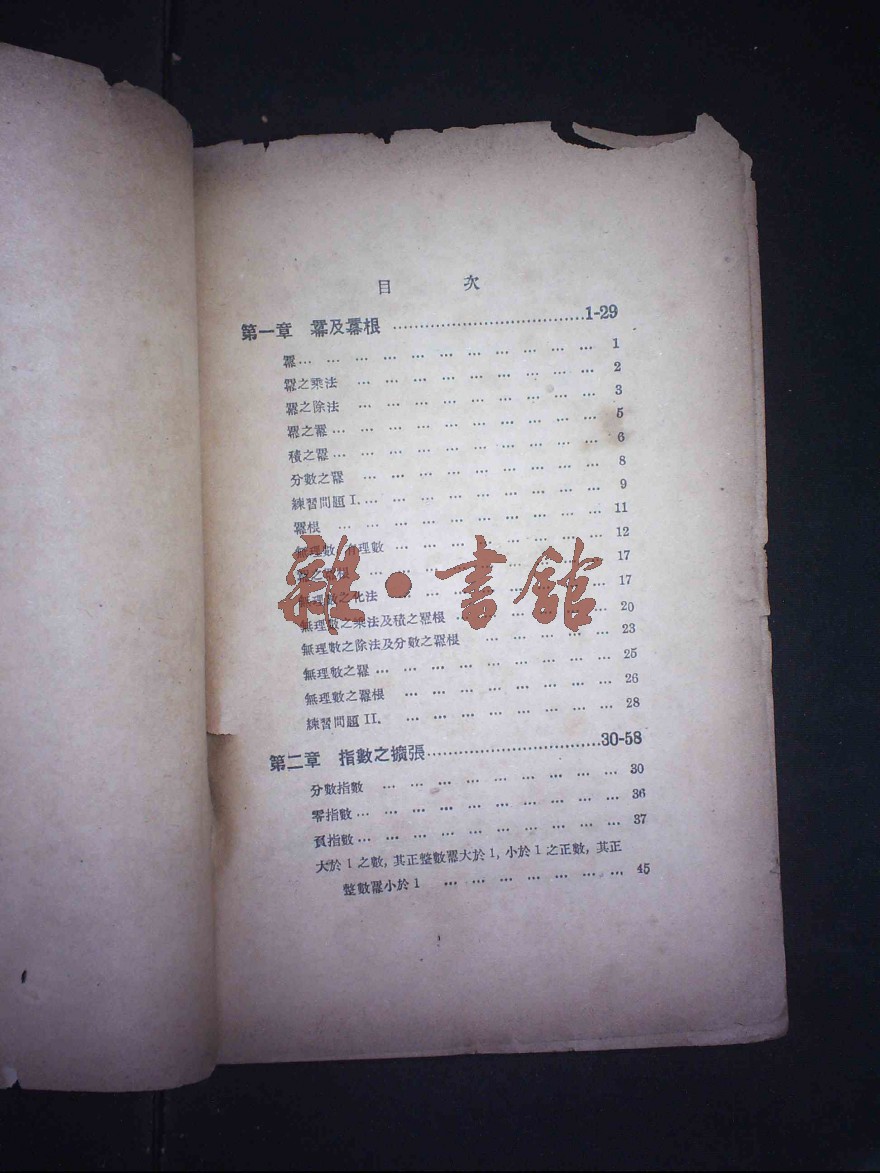 目 次
第一章 冪及冪根 ………………………………1-29
冪… … … … … … … … … … … 1
冪之乘法 … … … … … … … … … 2
冪之除法 … … … … … … … … … 3
冪之冪… … … … … … … … … … 5
積之冪… … … … … … … … … … 6
分數之冪 … … … … … … … … … 8
練習問題 I. … … … … … … … … … 9
冪根 … … … … … … … … … … 11
無理數,有理數 … … … … … … … … 12
冪根 … … … … … … … … … 17
無理數之化法 … … … … … … … … 17
無理數之乘法及積之冪根 … … … … … … 20
無理數之除法及分數之冪根 … … … … … 23
無理數之冪 … … … … … … … … … 25
無理數之冪根 … … … … … … … … 26
練習問題 II. … … … … … … … … 28
第二章 指數之擴張 ……………………………30-58
分數指數 … … … … … … … … … 30
零指數… … … … … … … … … … 36
負指數… … … … … … … … … … 37
大於 1 之數, 其正整數冪大於 1, 小於 1 之正數, 其正
整數冪小於 1 … … … … … … … 45
雜·書館